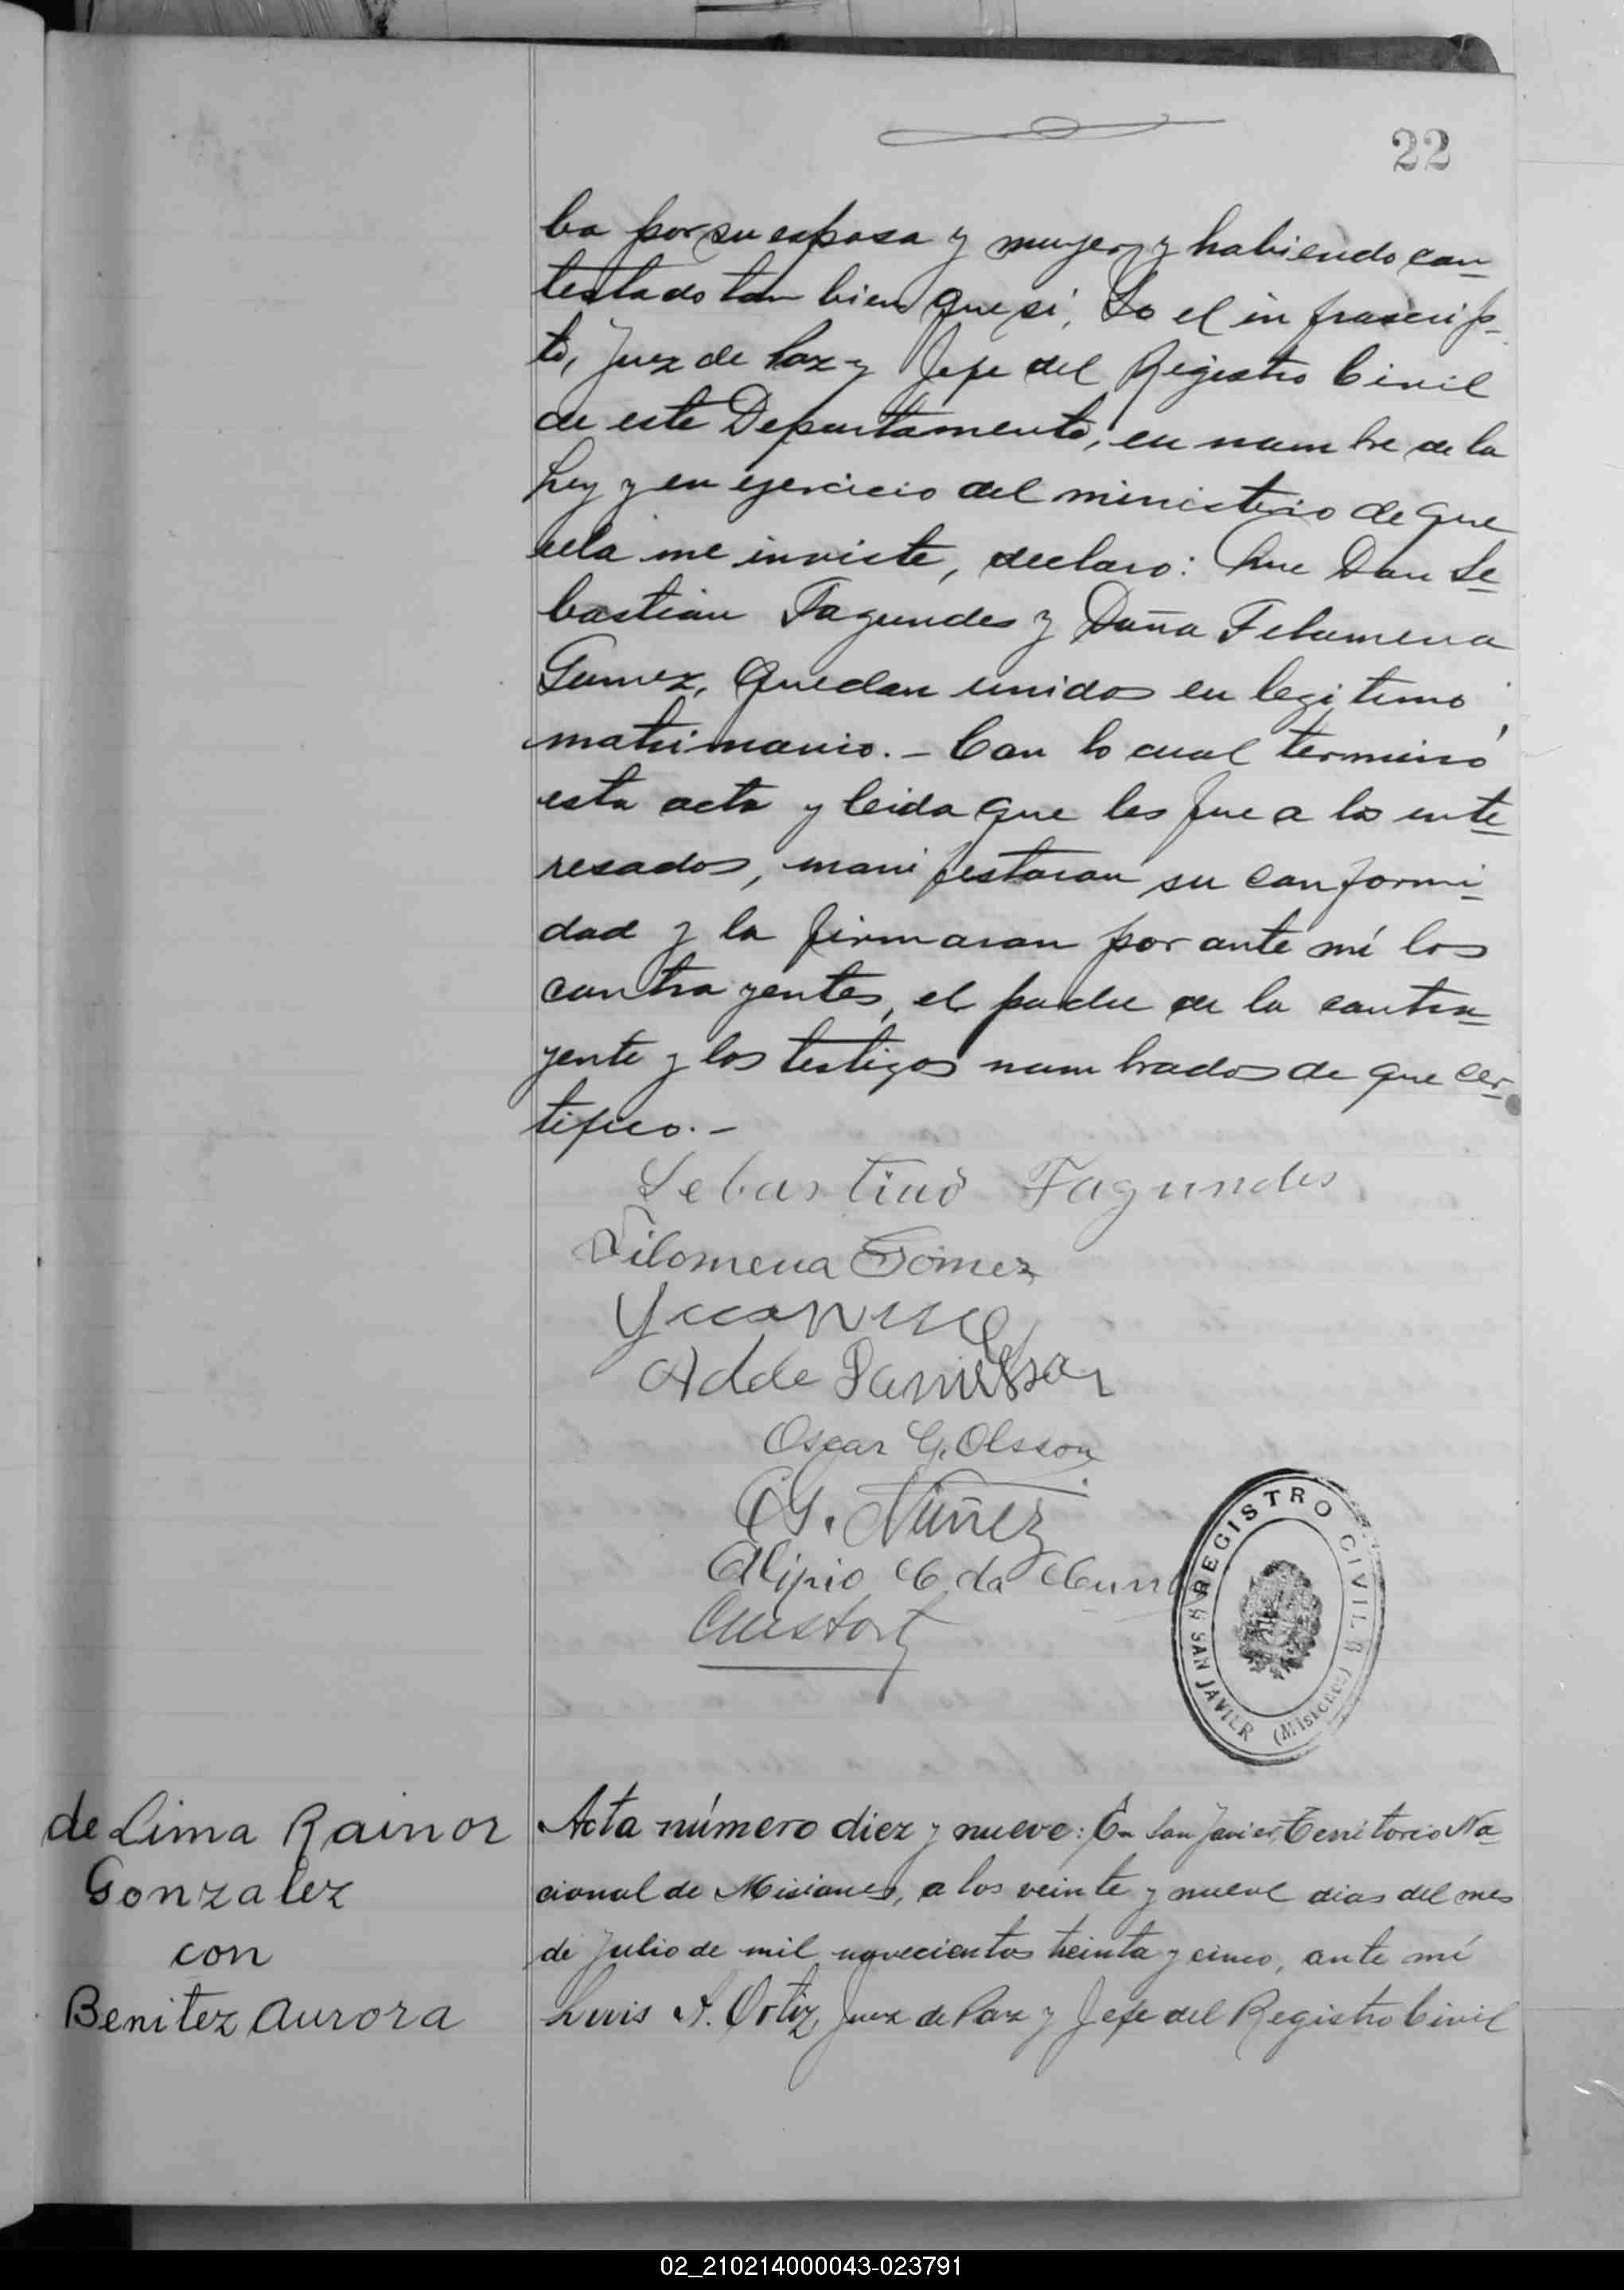 22
ba por su esposa y mujer, y habiendo con-
testado tam bien que si, Yo el in frascrip-
to, Juez de Paz y Jefe del Registro Civil
de este Departamento, en nom bre de la
Ley y en ejercicio del ministerio de que
ella me inviste, declaro: Que Don Se-
bastian Fagundes y Doña Felomena
Gomez, quedan unidos en legitimo
matrimonio.- Con lo cual terminó
esta acta y leida que les fue a los inte-
resados, mani festaron su conformi-
dad y la firmaron por ante mí los
contra yentes, el padre de la contra-
yente y los testigos nom brados de que cer-
tifico.-
Sebastiaó Fagundes
Filomena Gomez
Adde
Oscar G. Olsson
G. Nuñez
Alipio C. da
REGISTRO CIVIL
SAN JAVIER (Misiones)
de Lima Rainor
Gonzalez
con
Benitez Aurora
Acta número diez y nueve: En San Javier, Territorio Na-
cional de Misiones, a los veinte y nueve dias del mes
de Julio de mil novecientos treinta y cinco, ante mí
Luis A. Ortiz, Juez de Paz y Jefe del Registro Civil
02_210214000043-023791